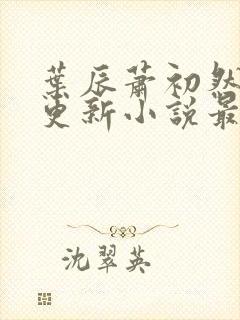 葉辰蕭初然
更新小說最
沈翠英